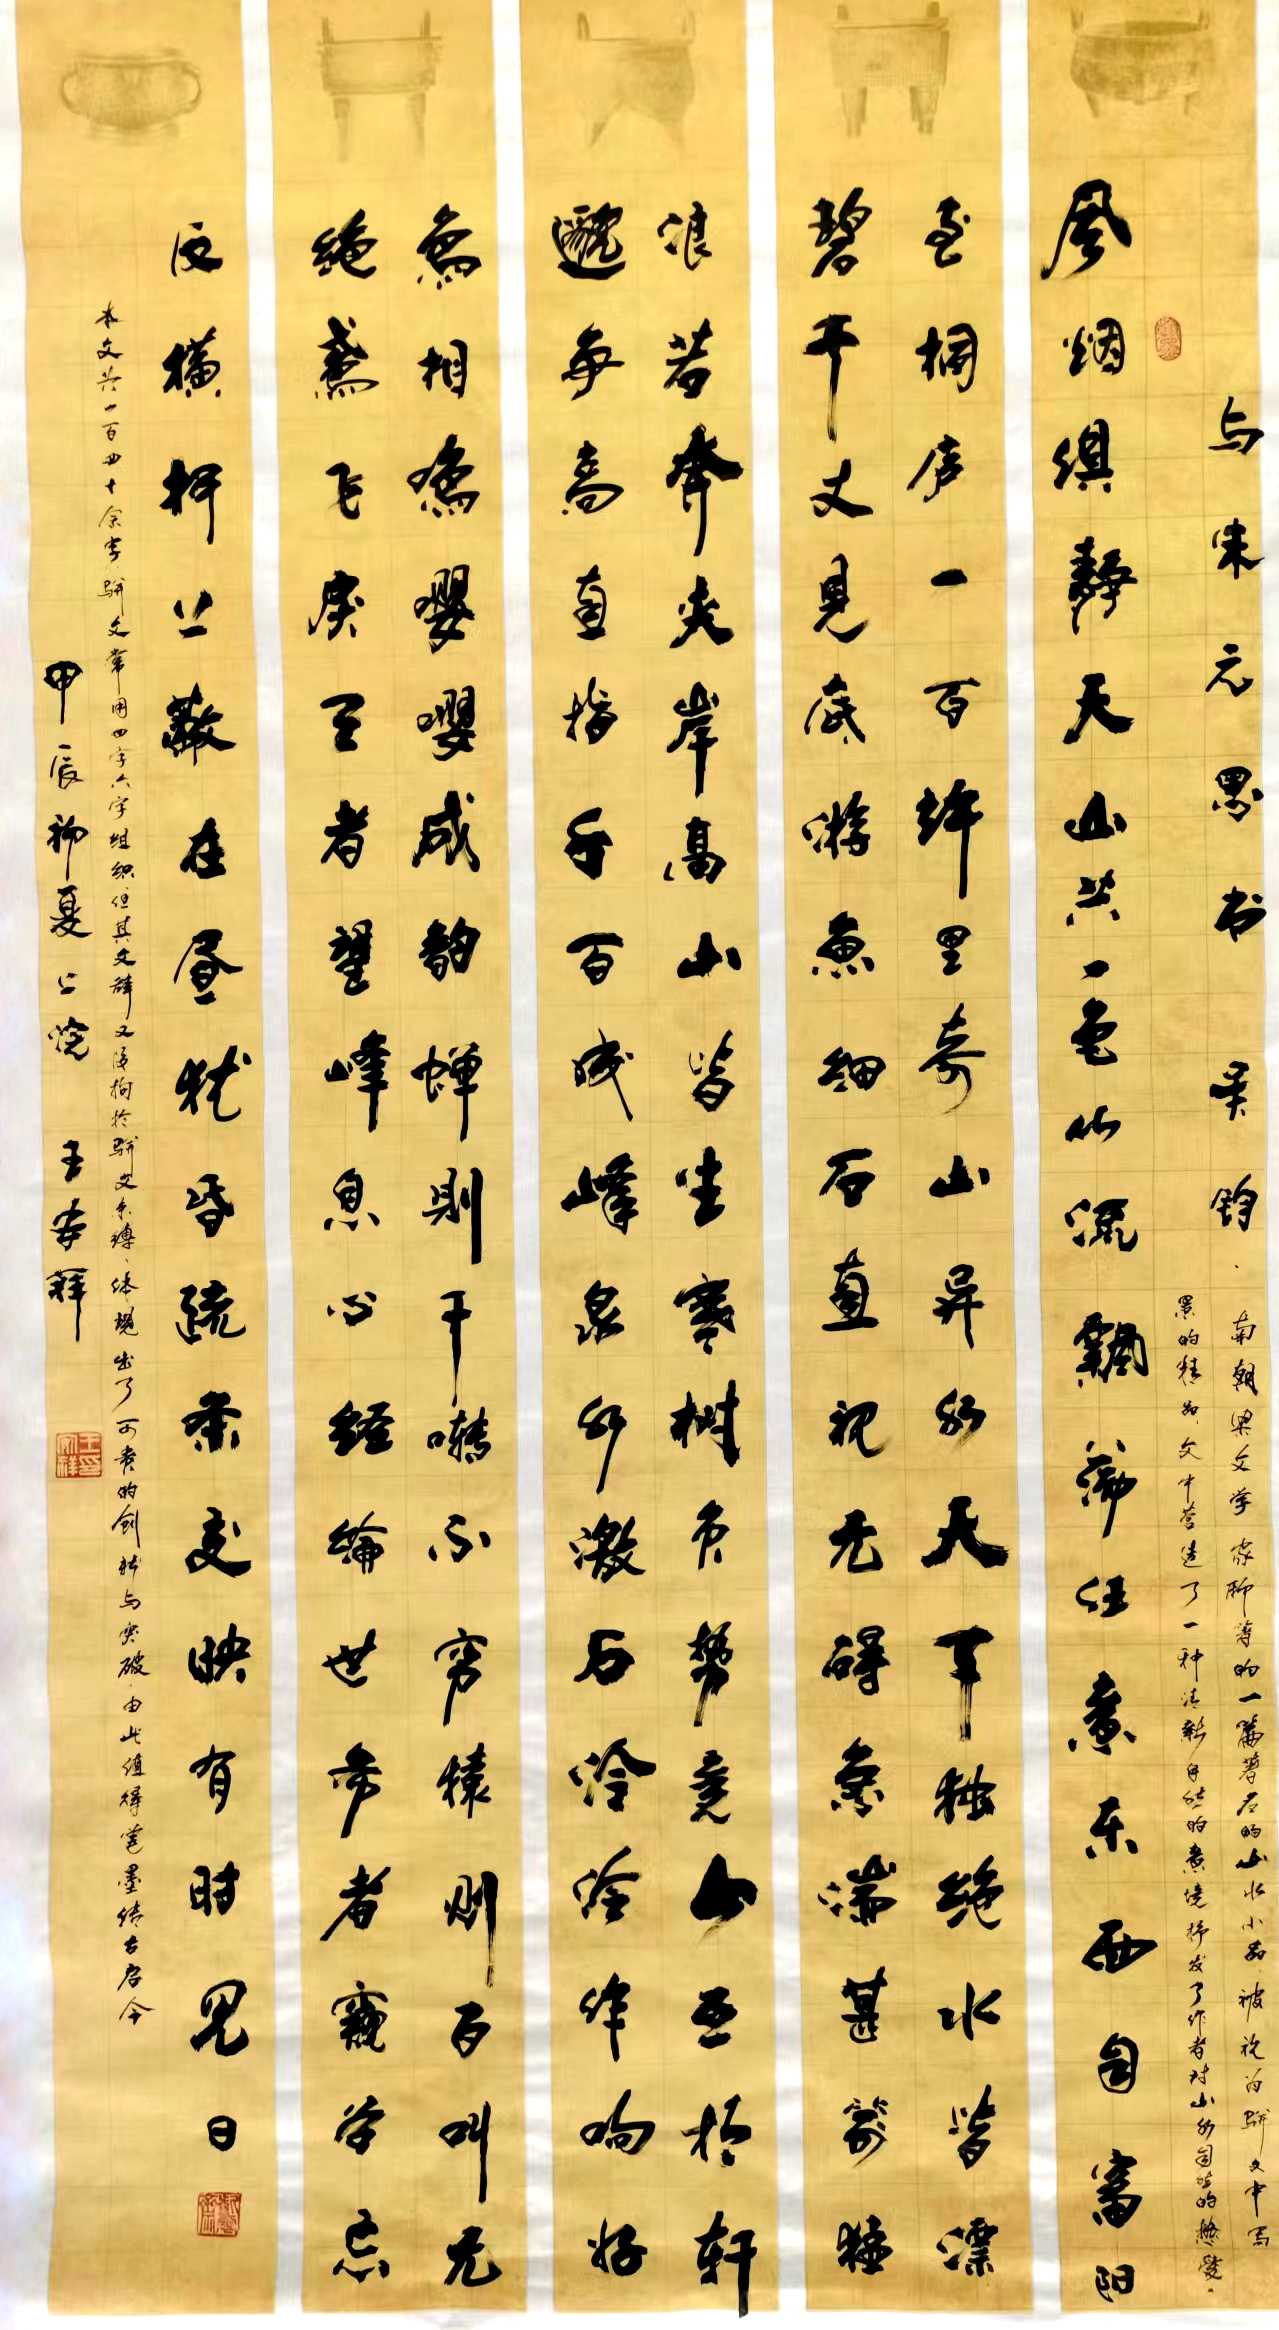 与朱元思书 吴钧
南朝梁文学家柳等的一篇著名的山水小品，被视为骈文中写
景的精品，文中营造了一种清新自然的意境抒发了作者对山水自然的热爱。
风烟俱静天山共一色从流飘荡任意东西自富阳
至桐庐一百许里奇山异水天下独绝水皆漂
碧千丈见底游鱼细石直视无碍急湍甚箭猛
浪若奔夹岸高山皆生寒树负势竞上互相轩
邈争高直指千百成峰泉水激石泠泠作响好
鸟相鸣嘤嘤成韵蝉则千啭不穷猿则百叫无
绝鸢飞戾天者望峰息心经纶世务者窥谷忘
反横柯上蔽在昼犹昏疏条交映有时见日
本文共一百四十余字骈文常用四字六字组织但其文辞又没拘於骈文束缚，体现出了可贵的创新与突破，由此值得笔墨传古启今
甲辰初夏上浣 王安祥